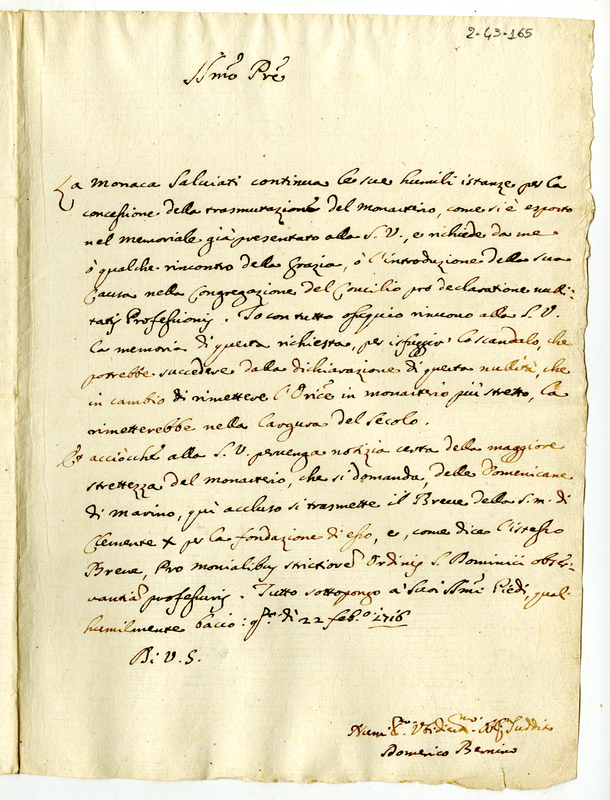 2-43-165
SS.mo Pre
La Monaca Salviati continua le sue humili istanze per la
concessione della trasmutazione del monasterio, come si è esposto
nel memoriale già presentato alla S.V., e richiede da me
ò qualche rincontro della grazia, ò l'introduzione della sua
Causa nella Congregazione del Concilio pro declaratione nulli-
tatis Professionis. Io con tutto ossequio rinuovo alla S.V.
la memoria di questa richiesta, per isfuggir lo scandalo, che
potrebbe succedere dalla dichiarazione di questa nullità, che
in cambio di rimettere l'Orice in monasterio più stretto, la
rimetterebbe nella largura del Secolo.
Et acciòche alla S.V. pervenga notizia certa della maggiore
strettezza del monasterio, che si domanda, delle Domenicane
di Marino, quì accluso si trasmette il Breve della S.m. di
Clemente X per la fondazione di esso, e, come dice l'istesso
Breve, Pro monialibus strictiorem Ordinis S. Dominici obser-
vantiam professuris. Tutto sottopongo à Suoi SSmi Piedi, quali
humilmente bacio: qto dì 22 feb.o 1716
Di V.S.
Humil.mo Vbidien.mo Obl. Suddito
Domenico Bernino